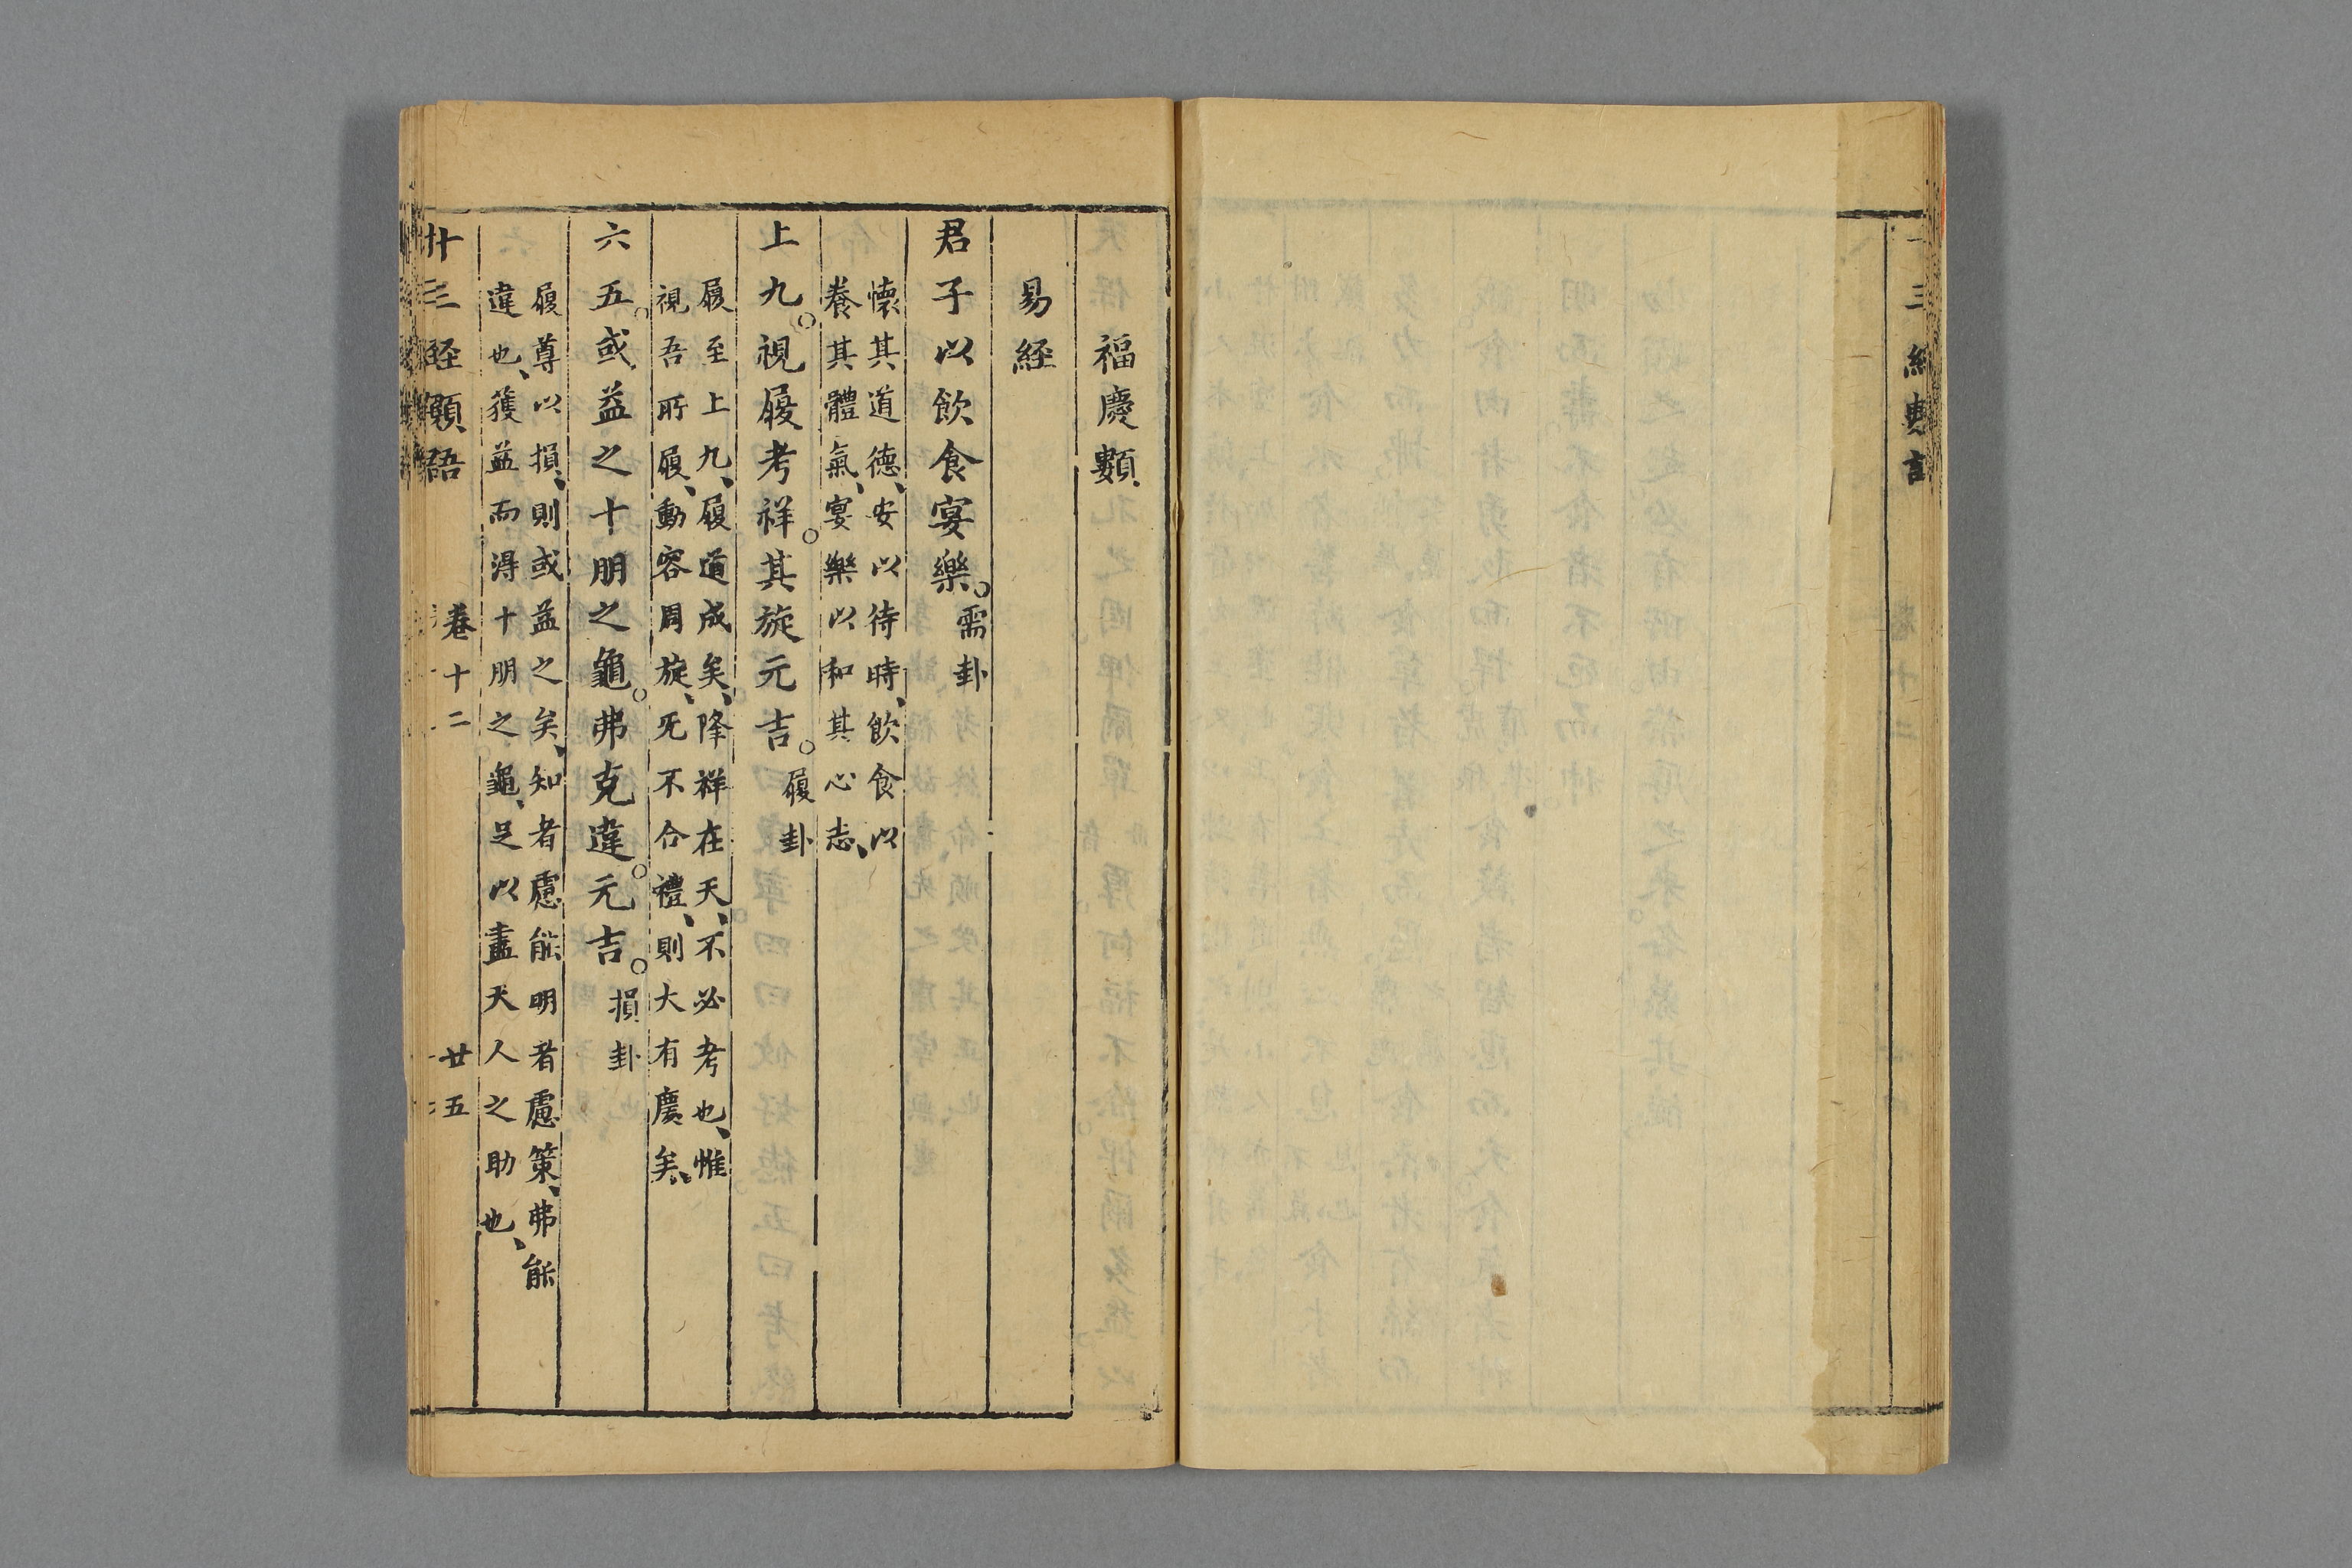 福慶類
易経
君子以飲食宴樂。需卦
懷其道德、安以待時、飲食以
養其體氣、宴樂以和其心志、
上九。視履考祥。其旋元吉。履卦
履至上九、履道成矣、降祥在天、不必考也、惟
視吾所履、動容周旋、旡不合禮、則大有慶矣、
六五。或益之十朋之龜。弗克違。元吉。損卦
履尊以損、則或益之矣、知者慮能明者慮策、弗能
違也、獲益而淂十朋之龜、足以盡天人之助也、
十三経類語 卷十二 廿五